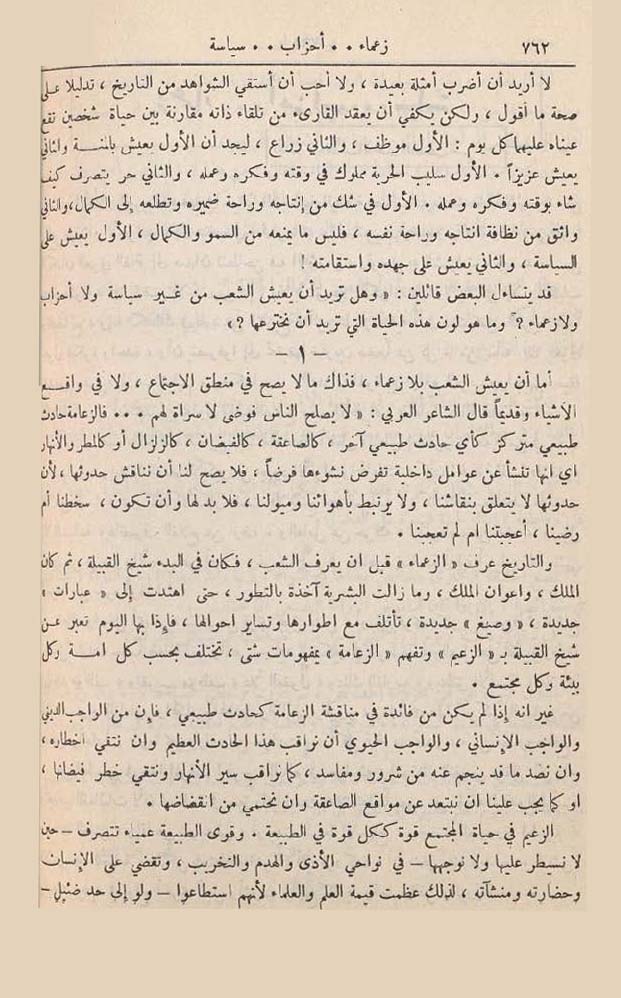 ٧٦٢ زعماء . . أحزاب . . سياسة
لا أريد أن أضرب أمثلة بعيدة ، ولا أحب أن أستقي الشواهد من التاريخ ، تدليلا على
صحة ما أقول ، ولكن يكفي أن يعقد القارىء من تلقاء ذاته مقارنة بين حياة شخصين تقع
عيناه عليهما كل يوم : الأول موظف ، والثاني زراع ، ليجد أن الأول يعيش بالمنــة والثاني
يعيش عزيزاً . الأول سليب الحرية مملوك في وقته وفكره وعمله ، والثاني حر يتصرف كيف
شاء بوقته وفكره وعمله . الأول في شك من إنتاجه وراحة ضميره وتطلعه إلى الكمال ، والثاني
واثق من نظافة انتاجه وراحة نفسه ، فليس ما يمنعه من السمو والكمال ، الأول يعيش على
السياسة ، والثاني يعيش على جهده واستقامته !
قد يتساءل البعض قائلين : « وهل تريد أن يعيش الشعب من غـير سياسة ولا أحزاب
ولا زعماء ؟ وما هو لون هذه الحياة التي تريد أن نخترعها ؟ »
– ١ –
أما أن يعيش الشعب بلا زعماء ، فذاك ما لا يصح في منطق الاجتماع ، ولا في واقـع
الأشياء وقديماً قال الشاعر العربي : « لا يصلح الناس فوضى لا سراة لهم . . . فالزعامة حادث
طبيعي متركز كأي حادث طبيعي آخر ، كالصاعقة ، كالفيضان ، كالزلزال أو كالمطر والأنهار
اي انها تنشأ عن عوامل داخلية تفرض نشوءها فرضاً ، فلا يصح لنا أن نناقش حدوثها ، لأن
حدوثها لا يتعلق بنقاشنا ، ولا يرتبط بأهوائنا وميولنا ، فلا بد لها وأن تكون ، سخطنا أم
رضينا ، أعجبتنا ام لم تعجبنا .
والتاريخ عرف « الزعماء » قبل ان يعرف الشعب ، فكان في البدء شيخ القبيلة ، ثم كان
الملك ، واعوان الملك ، وما زالت البشرية آخذة بالتطور ، حتى اهتدت إلى « عبارات »
جديدة ، « وصيغ » جديدة ، تأتلف مع اطوارها وتساير احوالها ، فإذا بها اليوم تعبر عـن
شيخ القبيلة بـ « الزعيم » وتفهم « الزعامة » بمفهومات شتى ، تختلف بحسب كل امـة وكل
بيئة وكل مجتمع .
غير انه إذا لم يكن من فائدة في مناقشة الزعامة كحادث طبيعي ، فإن من الواجب الديني
والواجب الإنساني ، والواجب الحيوي أن نراقب هذا الحادث العظيم وان نتقي اخطاره ،
وان نصد ما قد ينجم عنه من شرور ومفاسد ، كما نراقب سير الأنهار ونتقي خطر فيضانها ،
او كما يجب علينا ان نبتعد عن مواقع الصاعقة وان نحتمي من انقضاضها .
الزعيم في حياة المجتمع قوة ككل قوة في الطبيعة . وقوى الطبيعة عمياء تتصرف – حين
لا نسيطر عليها ولا نوجهها – في نواحي الأذى والهدم والتخريب ، وتقضي على الإنسان
وحضارته ومنشآته ، لذلك عظمت قيمة العلم والعلماء لأنهم استطاعوا – ولو إلى حد ضئيل –